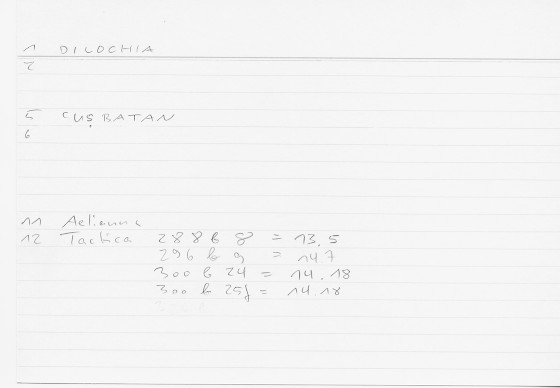 1 DILOCHIA
2
5 CUṢBATAN
6
11 Aelianus
12 Tactica 288 b 8 = 13.5
296 b 9 = 147
300 b 24 = 14.18
300 b 25f = 14.18